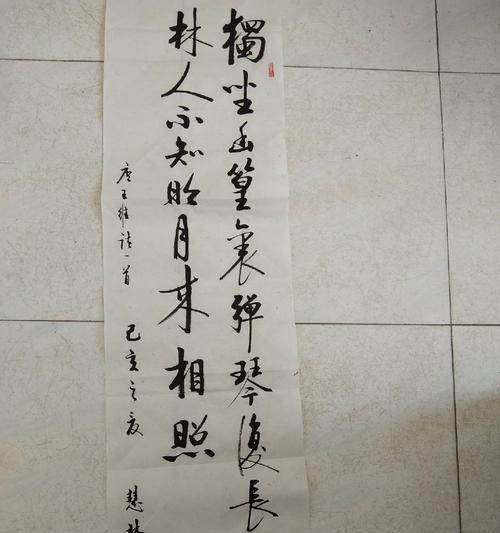 獨坐幽篁裏彈琴復長
林人不知明月来相照
唐王維詩一首 己亥之夏 慧林